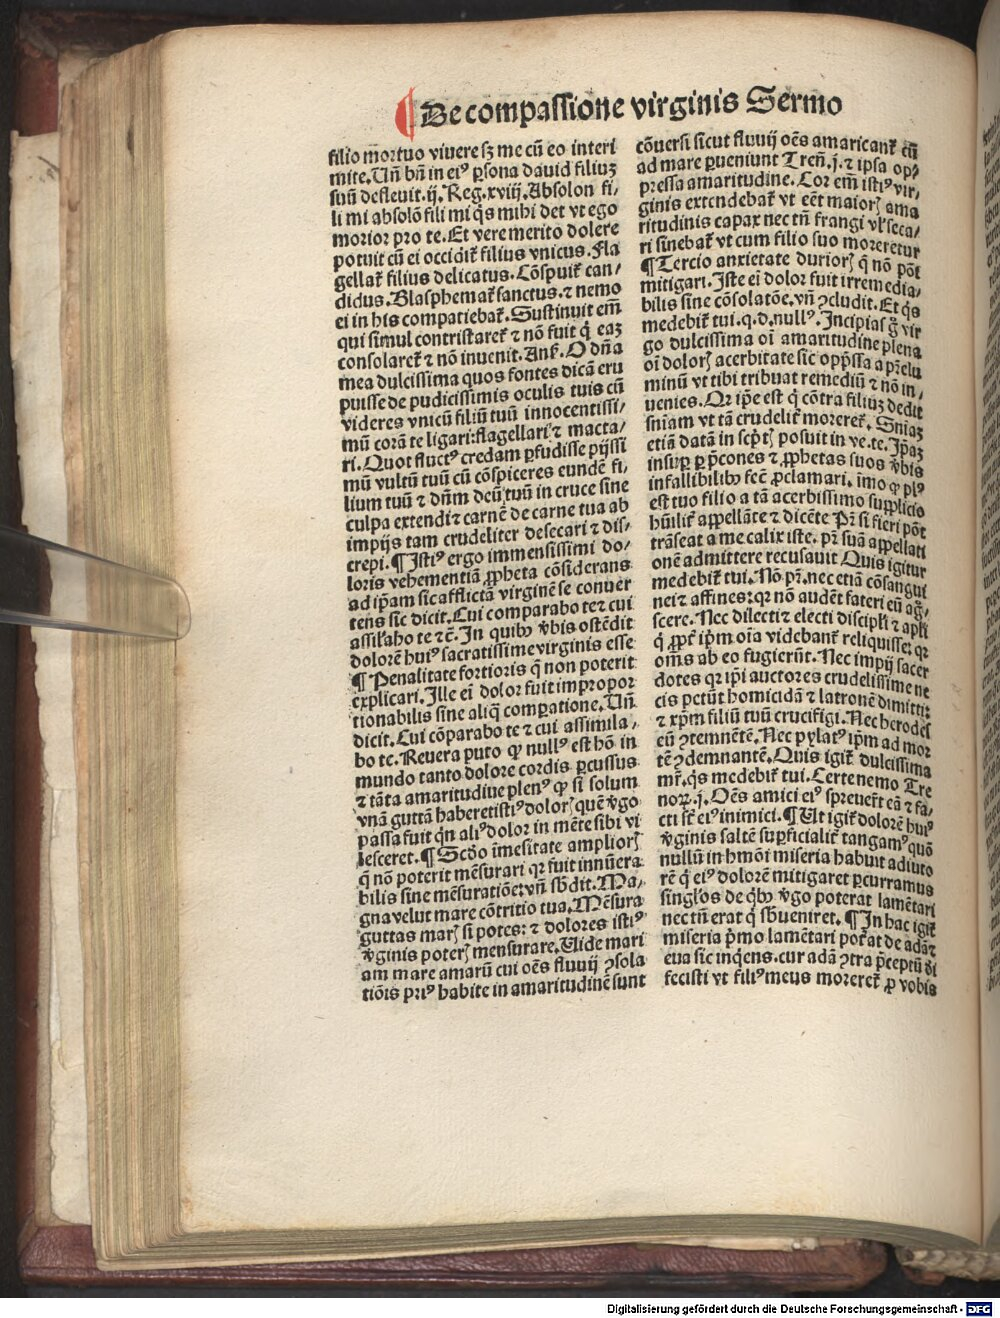 ¶ De compassione virginis Sermo
filio mortuo viuere sꝫ me cū eo interi
mite. Uñ bñ in eiꝰ ꝑsona dauid filiuꝫ
suū defleuit. ij. Reg. xviij. Absolon fi/
li mi absolō fili mi q̄s mihi det vt ego
morior pro te. Et vere merito dolere
potuit cū ei occidit᷑ filius vnicus. Fla
gellat᷑ filius delicatus. Cōspuit᷑ can/
didus. Blasphemat᷑ sanctus. ⁊ nemo
ei in his compatiebat᷑. Sustinuit em̄
qui simul contristaret᷑ ⁊ nō fuit q̇ eaꝫ
consolaret᷑ ⁊ nō inuenit. Ans̄. O dn̄a
mea dulcissima quos fontes dicā eru
puisse de pudicissimis oculis tuis cū
videres vnicū filiū tuū innocentissi/
mū corā te ligari: flagellari ⁊ macta/
ri. Quot fluctꝰ credam ꝑfudisse pijssi
mū vultū tuū cū cōspiceres eundē fi/
lium tuū ⁊ dn̄m deū tuū in cruce sine
culpa extendi ⁊ carnē de carne tua ab
impijs tam crudeliter desecari ⁊ dis/
crepi. ¶ Istiꝰ ergo immensissimi do/
loris vehementiā ꝓpheta cōsiderans
ad ip̄am sic afflictā virginē se conuer
tens sic dicit. Cui comparabo te ⁊ cui
assil̄abo te ⁊ c̄. In quibꝰ v̄bis ostēdit
dolorē huiꝰ sacratissime virginis esse
¶ Penalitate fortioris q̄ non poterit
explicari. Ille ei dolor fuit impropor
tionabilis sine aliq̄ comꝑatione. Uñ
dicit. Cui cōparabo te ⁊ cui assimila/
bo te. Reuera puto ꝙ nullꝰ est hō in
mundo tanto dolore cordis ꝑcussus
⁊ tāta amaritudine plenꝰ ꝙ si solum
vnā guttā haberet istiꝰ doloris quē v̄go
passa fuit q̄n aliꝰ dolor in mēte sibi vi
lesceret. ¶ Scd̄o īmēsitate amplioris
q̄ nō poterit mēsurari qꝛ fuit innūera
bilis sine mēsuratiōe: vñ sb̄dit. Ma/
gna velut mare cōtritio tua. Mēsura
guttas maris si potes: ⁊ dolores istiꝰ
v̄ginis poteris mensurare. Uide mari
am mare amarū cui oēs fluuij ↄsola
tiōis priꝰ habite in amaritudinē sunt
cōuersi sicut fluuij oēs amaricant᷑ cū
ad mare ꝑueniunt Tren̄. j. ⁊ ipsa op/
pressa amaritudine. Cor em̄ istiꝰ vir/
ginis extendebat᷑ vt eēt maioris ama
ritudinis capax nec tn̄ frangi vl̓ seca/
ri sinebat᷑ vt cum filio suo moreretur
¶ Tercio anxietate durioris q̄ nō pōt
mitigari. Iste ei dolor fuit irremedia/
bilis sine cōsolatōe. vñ ↄcludit. Et q̇s
medebit᷑ tui. q. d. nullꝰ. Incipias g̊ vir
go dulcissima oī amaritudine plena
oī doloris acerbitate sic opp̄ssa a p̄relu
minū vt tibi tribuat remediū ⁊ nō in/
uenies. Qꝛ ip̄e est q̇ cōtra filiuꝫ dedit
sn̄iam vt tā crudelit᷑ moreret᷑. Sn̄iaꝫ
etiā datā in scpt̄is posuit in ve. te. Ip̄aꝫ
insuꝑ ꝑ p̄cones ⁊ ꝓphetas suos v̄bis
infallibilibꝰ fec̄ ꝓclamari. īmo ꝙ plꝰ
est tuo filio a tā acerbissimo supplicio
hūilit᷑ appellāte ⁊ dicēte Pr̄ si fieri pōt
trāseat a me calix iste. pr̄ suā appellati
onē admittere recusauit Quis igitur
medebit᷑ tui. Nō pr̄. nec etiā cōsangui
nei ⁊ affines: qꝛ nō audēt fateri eū ag̊/
scere. Nec dilecti ⁊ electi discipl̓i ⁊ apl̓i
q̇ ꝓpt̓ ip̄m oīa videbant᷑ reliquisse: qꝛ
om̄s ab eo fugierūt. Nec impij sacer
dotes qꝛ ip̄i auctores crudelissime ne
cis petūt homicidā ⁊ latronē dimitti:
⁊ xp̄m filiū tuū crucifigi. Nec herodes
eū ↄtemnētē. Nec pylatꝰ ip̄m ad mor
tē ↄdemnantē. Quis igit᷑ dulcissima
mr̄. q̇s medebit᷑ tui. Certe nemo Tre
noꝝ. j. Oēs amici eiꝰ spreuer̄t eā ⁊ fa/
cti sūt ei inimici. ¶ Ut igit᷑ dolorē huiꝰ
v̄ginis saltē suꝑficialit᷑ tangamꝰ quō
nullū in hmōi miseria habuit adiuto
rē q̇ eiꝰ dolorē mitigaret ꝑcurramus
singl̓os de qbꝰ v̄go poterat lamētari
nec tn̄ erat q̇ sb̄ueniret. ¶ In hac igit᷑
miseria p̄mo lamētari pot̓at de adā ⁊
eua sic inq̇ens. cur adā ↄtra p̄ceptū di
fecisti vt filiꝰ meus moreret᷑ ꝓ vobis
Digitalisierung gefördert durch die Deutsche Forschungsgemeinschaft - DFG